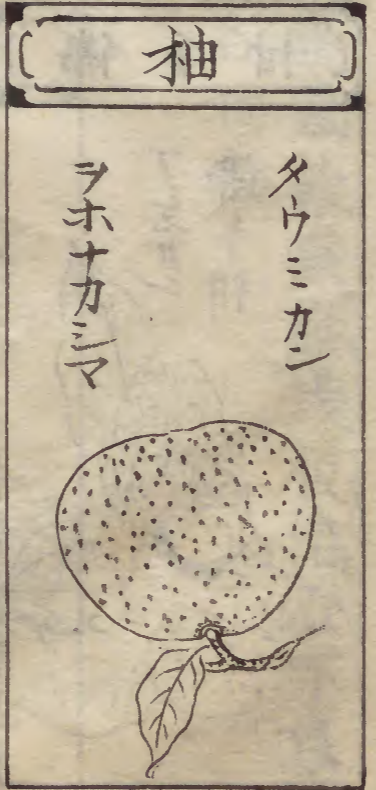 柚
タウミカン
ヲホナカシマ